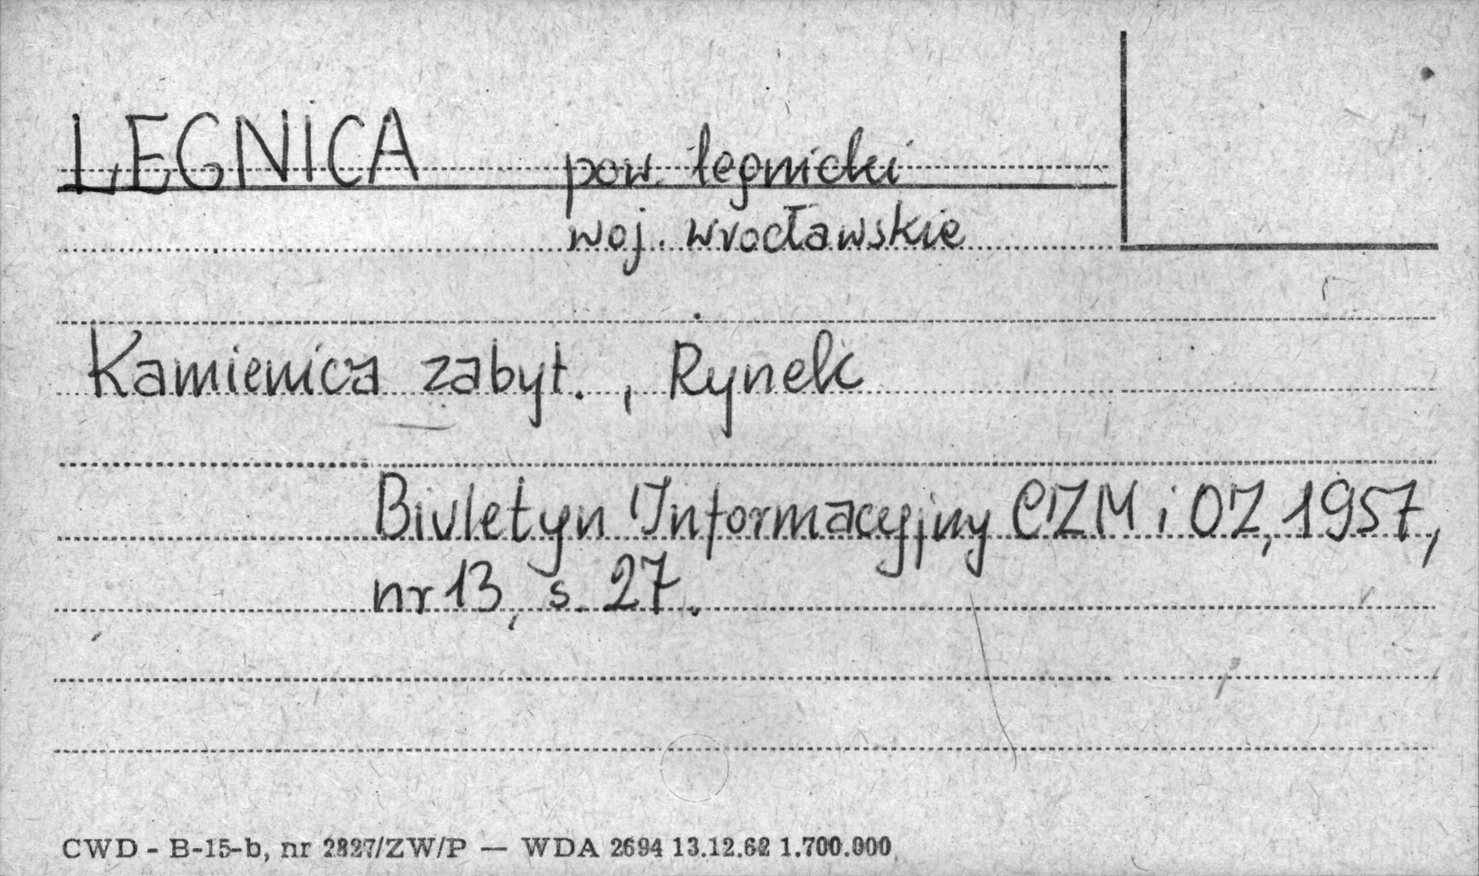 LEGNICA pow. legnicki
woj. wrocławskie
Kamienica zabyt., Rynek
Biuletyn Informacyjny CZM i OZ, 1957,
nr 13, s. 27.
CWD - B-15-b, nr 2827/ZW/P — WDA 2694 13.12.62 1.700.000